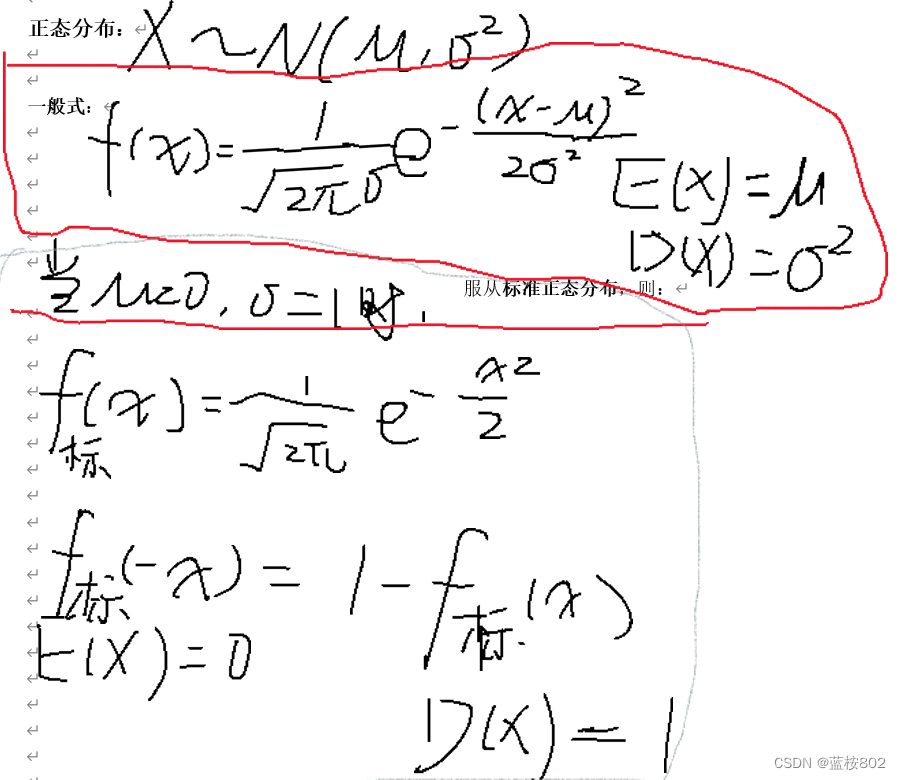 正态分布: X ~ N(μ, σ²)
一般式: f(x) = \frac{1}{\sqrt{2π}σ} e^{-\frac{(x-μ)^2}{2σ^2}}
E(X) = μ
D(X) = σ²
当 μ=0, σ=1时, 服从标准正态分布, 则:
f标(x) = \frac{1}{\sqrt{2π}} e^{-\frac{x^2}{2}}
f标(-x) = 1 - f标(x)
E(X) = 0
D(X) = 1
CSDN @蓝桉802